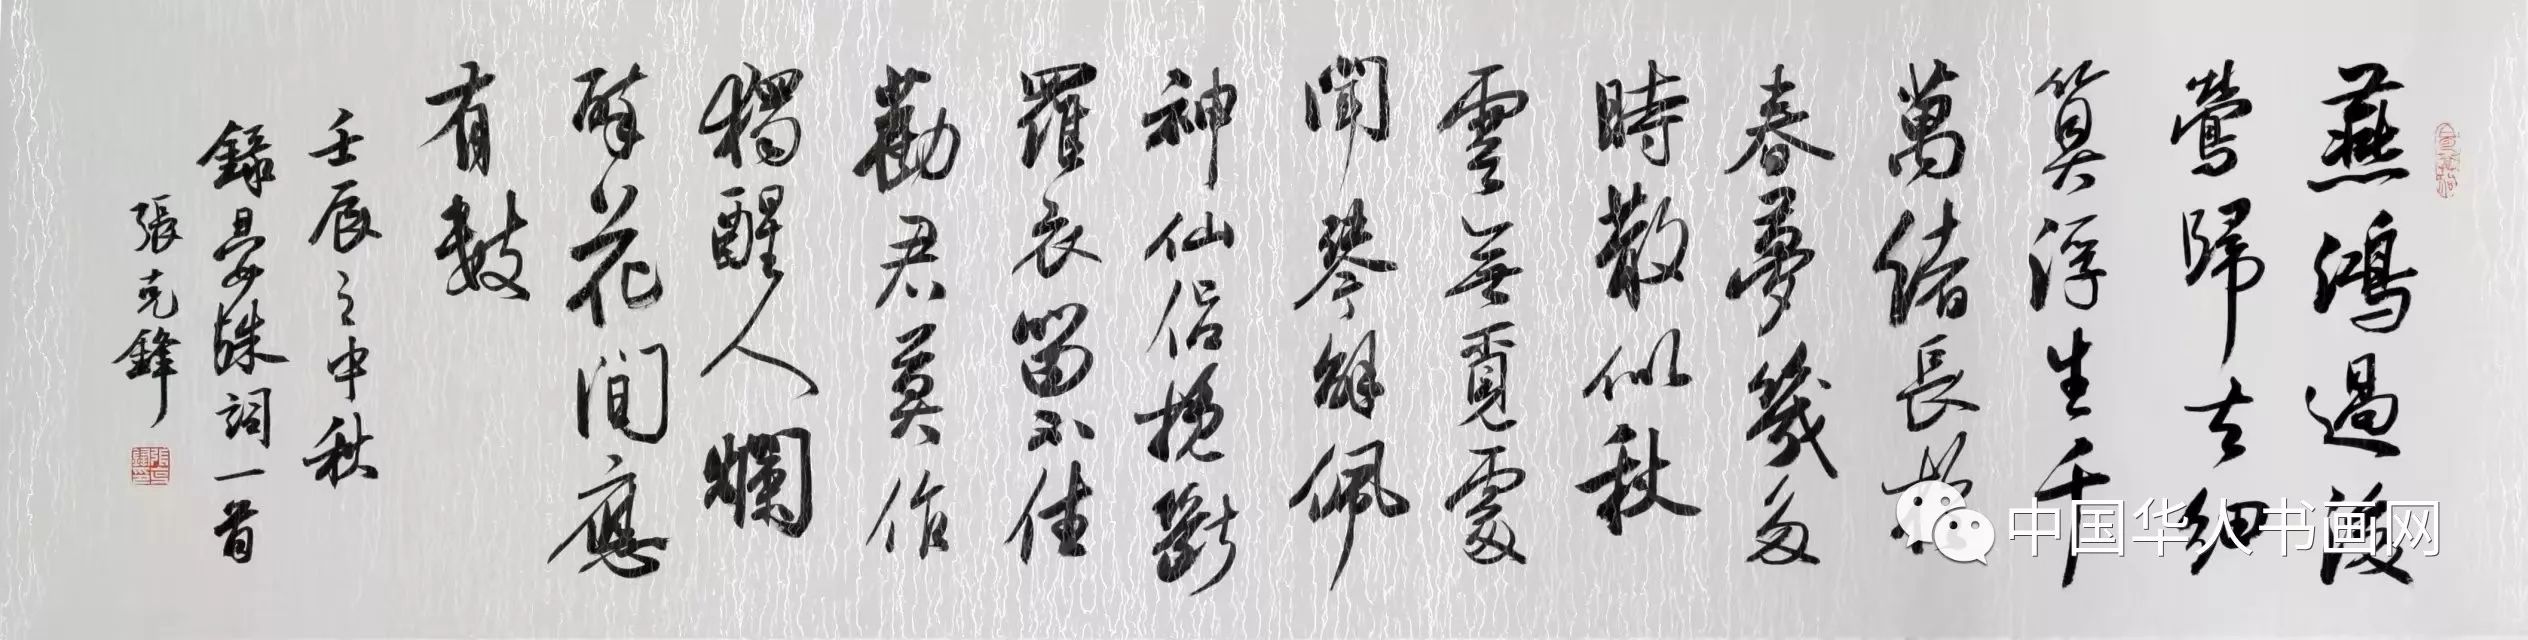 燕鴻過後
鶯歸去細
算浮生千
萬緒長於
春夢幾多
時散似秋
雲無覓處
聞琴解佩
神仙侣挽斷
羅衣留不住
勸君莫作
獨醒人爛
醉花間應
有數
壬辰之中秋
錄晏殊詞一首
張克鋒
中国华人书画网